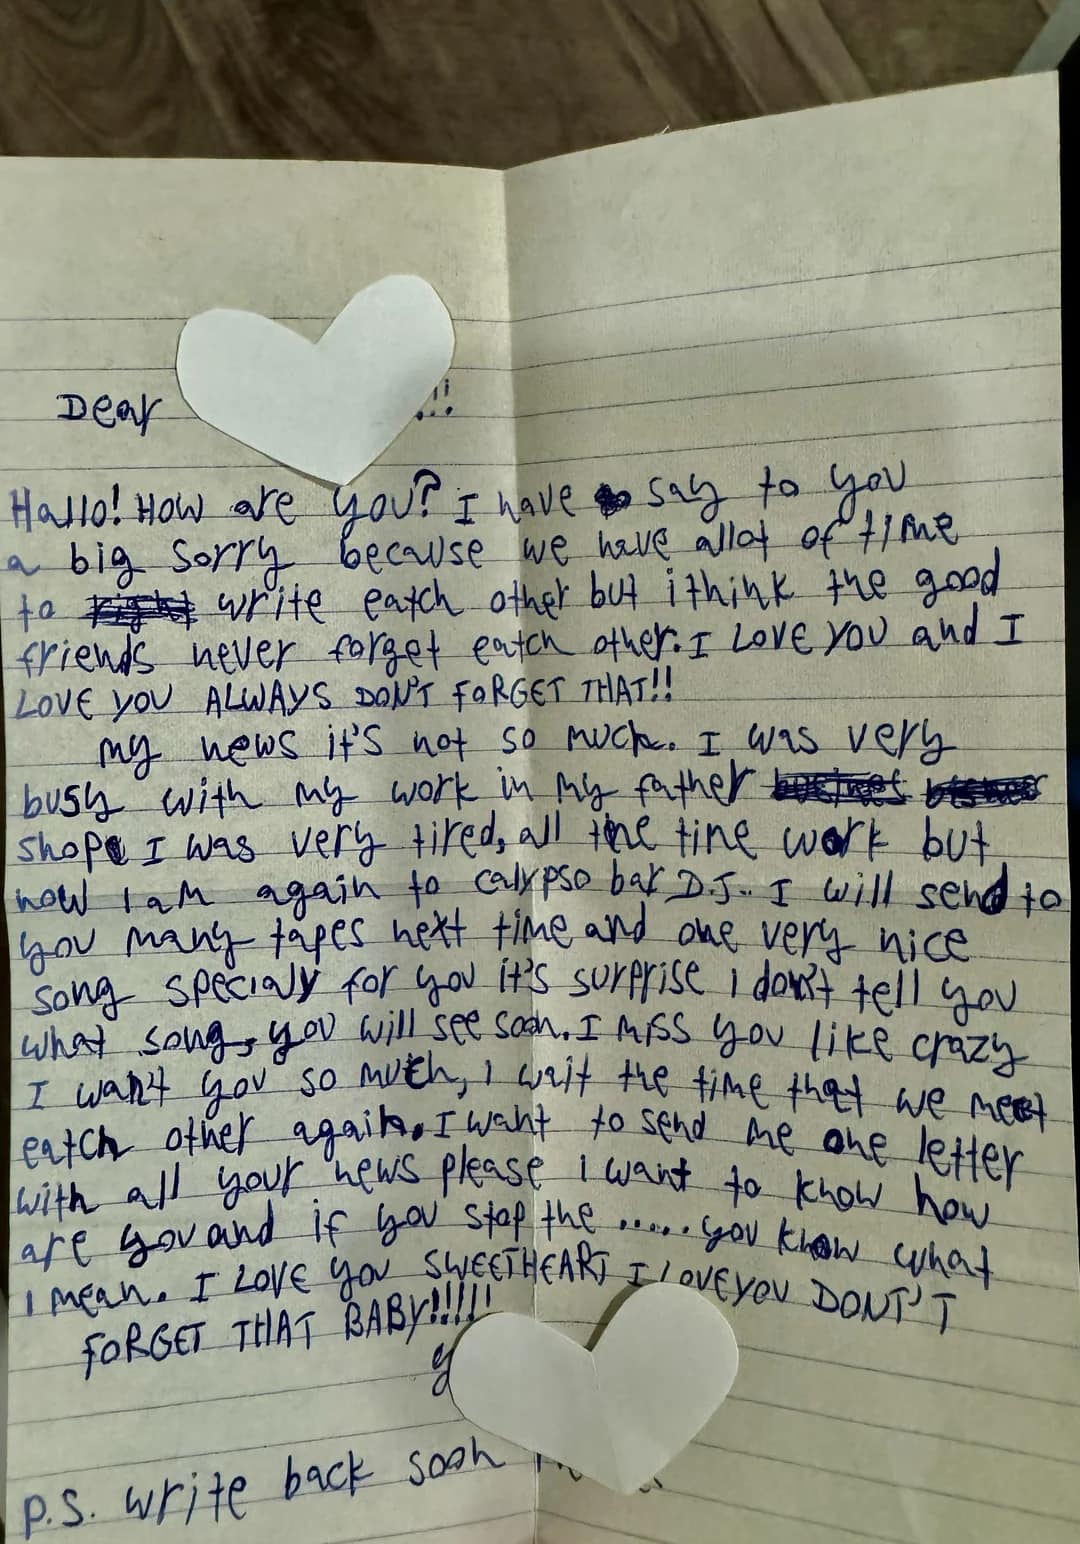 Dear !!
Hallo! How are you? I have say to you
a big sorry because we have allot of time
to write eatch other but i think the good
friends never forget eatch other. I LOVE YOU and I
LOVE YOU ALWAYS DON'T FORGET THAT!!
my news it's not so much. I was very
busy with my work in my father
shop I was very tired, all the tine work but
now I aM again to calypso bar D.J.. I will send to
you many tapes next time and one very nice
song specialy for you it's surprise I don't tell you
what song, you will see soon. I miss you like crazy
I want you so much, I wait the time that we meet
eatch other again. I want to send me one letter
with all your news please I want to know how
are you and if you stop the ..... you know what
I mean. I LOVE you SWEETHEART I LOVE YOU DONT'T
FORGET THAT BABY!!!!!
y
P.S. write back soon